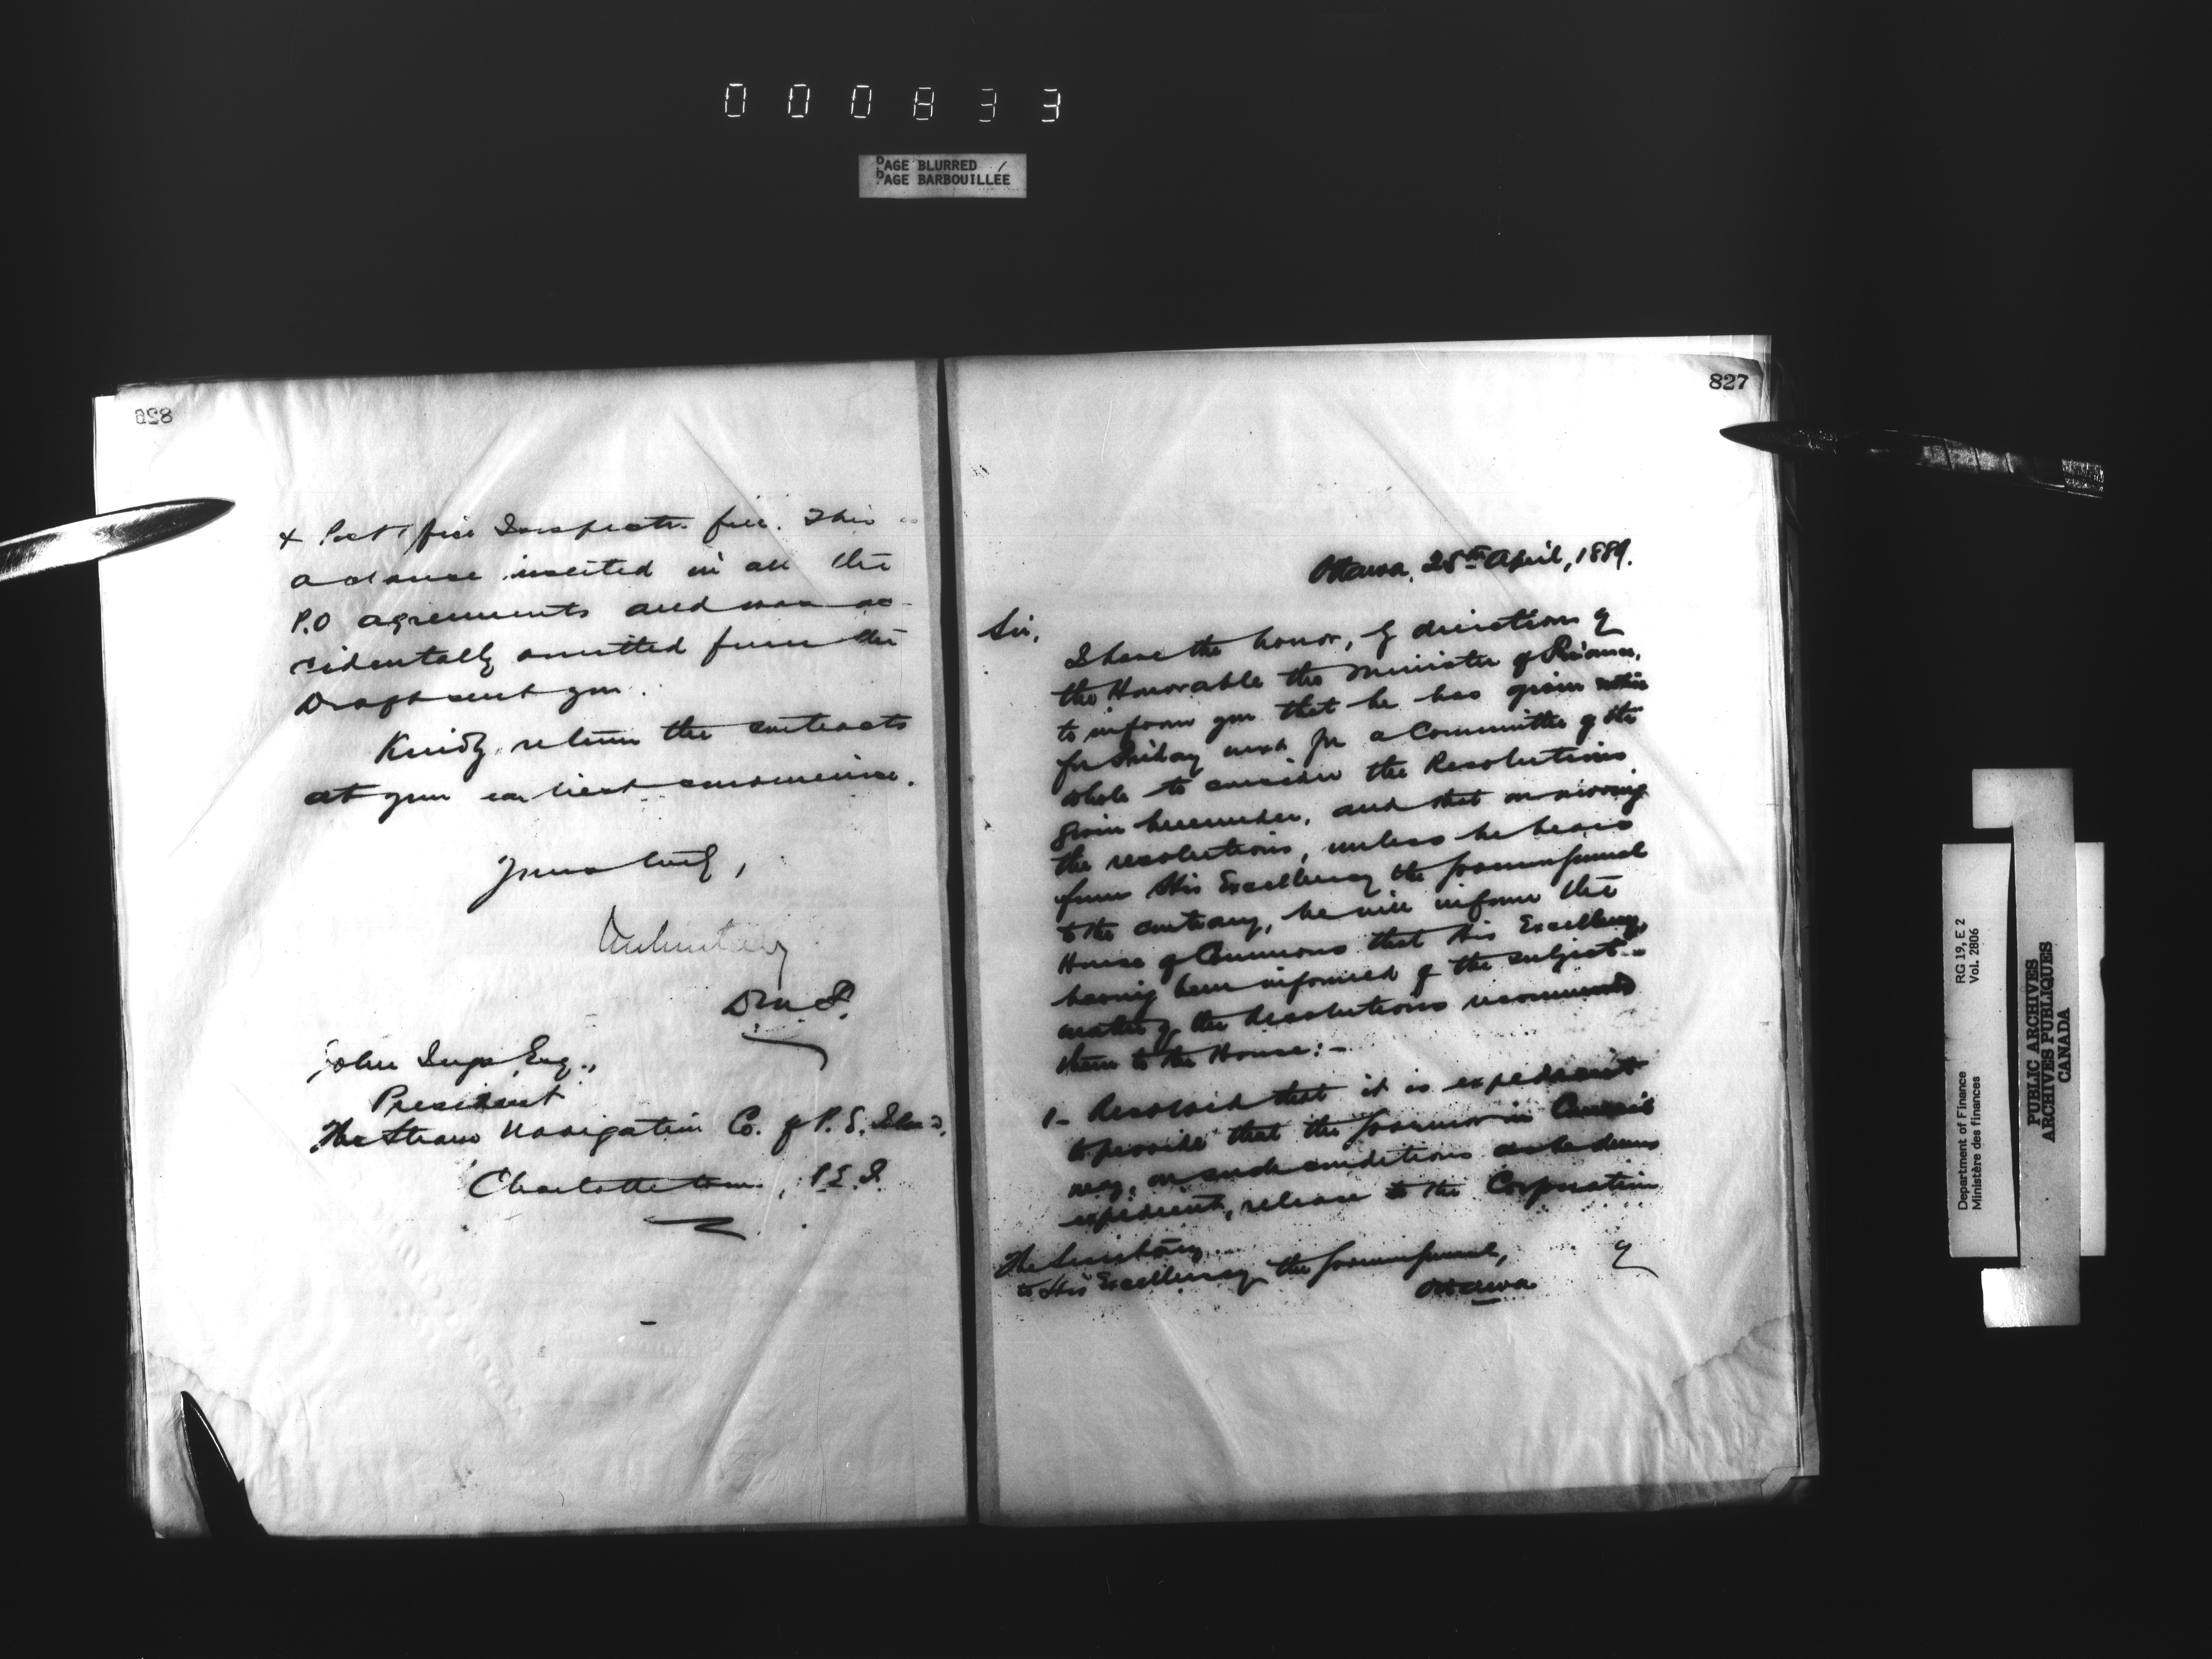 000833
PAGE BLURRED
PAGE BARBOUILLÉE
& Post Office Inspector free. This is
a clause inserted in all the
P.O agreements and was ac-
cidentally omitted from the
Draft sent you.
Kindly return the contracts
at your earliest convenience.
Yours truly,
D.M.F.
John Esq.,
President
The Steam Navigation Co. of P. E. Island,
Charlottetown, P.E.I.
827
Ottawa, 25th April, 1889.
Sir,
I have the honor, by direction of
the Honorable the Minister of Finance,
to inform you that he has given notice
for Friday next for a Committee of the
whole to consider the Resolutions
given hereunder, and that on moving
the resolutions, unless he hears
from His Excellency the Governor General
to the contrary, he will inform the
House of Commons that His Excellency,
having been informed of the subject-
matter of the Resolutions recommends
them to the House:-
1- Resolved that it is expedient
to provide that the Governor in Council
may, on such conditions as he deems
expedient, release to the Corporation
of
The Secretary
to His Excellency the Governor General,
Ottawa
Department of Finance RG 19, E 2
Ministère des finances Vol. 2806
PUBLIC ARCHIVES
ARCHIVES PUBLIQUES
CANADA